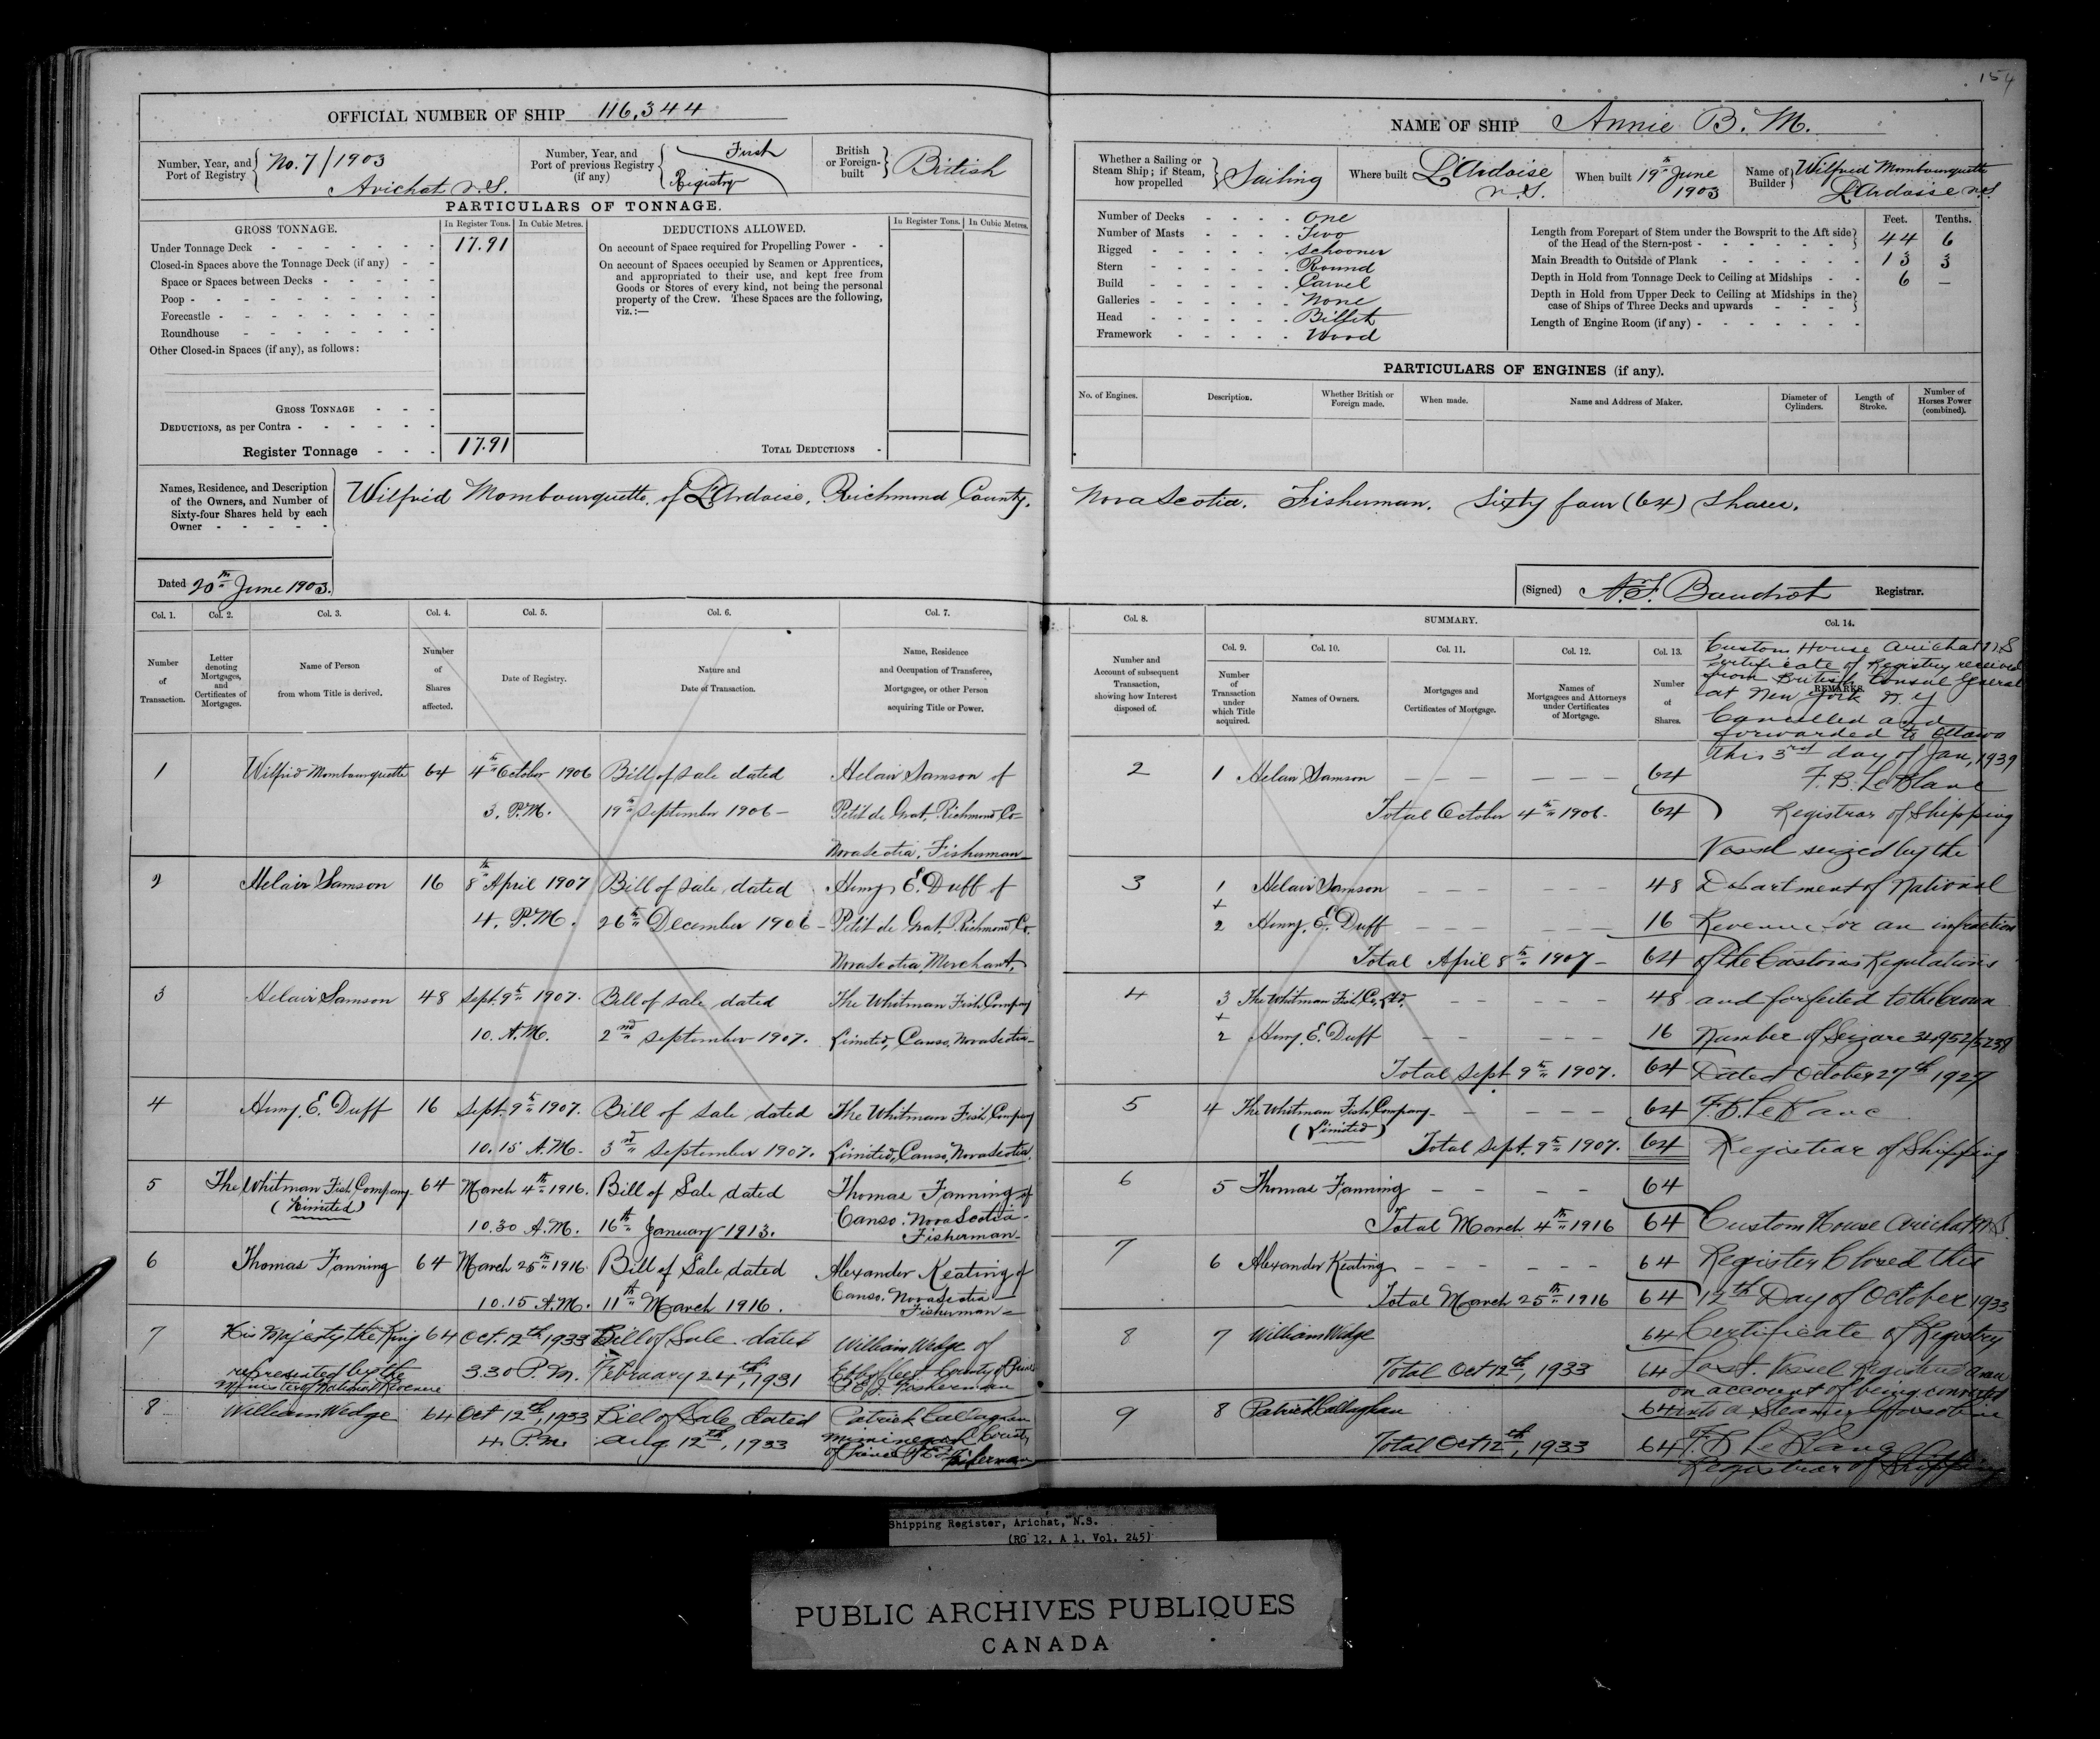 154
OFFICIAL NUMBER OF SHIP 116,344
Number, Year, and Port of Registry No. 7/1903 Arichat N.S.
Number, Year, and Port of previous Registry (if any) First Registry
British or Foreign-built British
PARTICULARS OF TONNAGE.
GROSS TONNAGE. In Register Tons. In Cubic Metres.
Under Tonnage Deck 17.91
Closed-in Spaces above the Tonnage Deck (if any)
Space or Spaces between Decks
Poop
Forecastle
Roundhouse
Other Closed-in Spaces (if any), as follows:
GROSS TONNAGE
DEDUCTIONS, as per Contra
Register Tonnage 17.91
DEDUCTIONS ALLOWED. In Register Tons. In Cubic Metres.
On account of Space required for Propelling Power
On account of Spaces occupied by Seamen or Apprentices,
and appropriated to their use, and kept free from
Goods or Stores of every kind, not being the personal
property of the Crew. These Spaces are the following,
viz.:—
TOTAL DEDUCTIONS
NAME OF SHIP Annie B. M.
Whether a Sailing or Steam Ship; if Steam, how propelled Sailing
Where built L'Ardoise N.S.
When built 19th June 1903
Name of Builder Wilfrid Mombourquette L'Ardoise N.S.
Number of Decks One
Number of Masts Two
Rigged Schooner
Stern Round
Build Carvel
Galleries None
Head Billet
Framework Wood
Feet. Tenths.
Length from Forepart of Stem under the Bowsprit to the Aft side
of the Head of the Stern-post 44 6
Main Breadth to Outside of Plank 13 3
Depth in Hold from Tonnage Deck to Ceiling at Midships 6 —
Depth in Hold from Upper Deck to Ceiling at Midships in the
case of Ships of Three Decks and upwards
Length of Engine Room (if any)
PARTICULARS OF ENGINES (if any).
No. of Engines. Description. Whether British or Foreign made. When made. Name and Address of Maker. Diameter of Cylinders. Length of Stroke. Number of Horses Power (combined).
Names, Residence, and Description
of the Owners, and Number of
Sixty-four Shares held by each
Owner
Wilfrid Mombourquette of L'Ardoise, Richmond County, Nova Scotia. Fisherman. Sixty four (64) Shares.
Dated 20th June 1903.
(Signed) Registrar.
Col. 1. Col. 2. Col. 3. Col. 4. Col. 5. Col. 6. Col. 7.
Number of Transaction.
Letter denoting Mortgages, and Certificates of Mortgages.
Name of Person from whom Title is derived.
Number of Shares affected.
Date of Registry.
Nature and Date of Transaction.
Name, Residence and Occupation of Transferee, Mortgagee, or other Person acquiring Title or Power.
1 Wilfrid Mombourquette 64 4th October 1906 Bill of sale dated Helair Samson of
3. P.M. 19th September 1906 – Petit de Grat, Richmond Co–
Nova Scotia, Fisherman
2 Helair Samson 16 8th April 1907 Bill of sale dated Henry E. Duff of
4. P.M. 26th December 1906 – Petit de Grat, Richmond Co.
Nova Scotia, Merchant.
3 Helair Samson 48 Sept. 9th 1907. Bill of sale dated The Whitman Fish Company
10. A.M. 2nd September 1907. Limited, Canso, Nova Scotia–
4 Henry. E. Duff 16 Sept. 9th 1907. Bill of sale dated The Whitman Fish Company
10.15 A.M. 3rd September 1907. Limited, Canso, Nova Scotia.
5 The Whitman Fish Company (Limited) 64 March 4th 1916. Bill of Sale dated Thomas Fanning of
10.30 A.M. 16th January 1913. Canso. Nova Scotia.
Fisherman–
6 Thomas Fanning 64 March 25th 1916. Bill of Sale dated Alexander Keating of
10.15 A.M. 11th March 1916. Canso. Nova Scotia
Fisherman
7 His Majesty the King 64 Oct. 12th 1933 Bill of Sale dated William Wedge of
represented by the 3.30 P.M. February 24th, 1931 County of Prince
Minister of National Revenue P.E.I. Fisherman
8 William Wedge 64 Oct 12th, 1933 Bill of Sale dated Patrick Callaghan
4. P.M. Aug. 12th, 1933 Miminegash County
of Prince P.E.I. Fisherman
Col. 8. SUMMARY. Col. 14.
Number and Account of subsequent Transaction, showing how Interest disposed of.
Col. 9. Col. 10. Col. 11. Col. 12. Col. 13.
Number of Transaction under which Title acquired.
Names of Owners.
Mortgages and Certificates of Mortgage.
Names of Mortgagees and Attorneys under Certificates of Mortgage.
Number of Shares.
REMARKS.
2 1 Helair Samson 64
Total October 4th 1906. 64
3 1 Helair Samson 48
+
2 Henry. E. Duff 16
Total April 8th 1907 – 64
4 3 The Whitman Fish Co, Ltd. 48
+
2 Henry. E. Duff 16
Total Sept 9th 1907. 64
5 4 The Whitman Fish Company 64
(Limited)
Total Sept. 9th 1907. 64
6 5 Thomas Fanning 64
Total March 4th 1916 64
7 6 Alexander Keating 64
Total March 25th 1916 64
8 7 William Wedge 64
Total Oct 12th, 1933 64
9 8 Patrick Callaghan 64
Total Oct 12th, 1933 64
Custom House Arichat N.S
Certificate of Registry received
from British Consul General
at New York N.Y
Cancelled and
forwarded to Ottawa
this 3rd day of Jan, 1939
F.B. LeBlanc
Registrar of Shipping
Vessel seized by the
Department of National
Revenue for an infraction
of the Customs Regulations
and forfeited to the Crown
Number of Seizure 34952/5238
Dated October 27th 1927
F.B. LeBlanc
Registrar of Shipping
Custom House Arichat N.S.
Register Closed this
12th Day of October 1933
Certificate of Registry
Lost. Vessel Registered anew
on account of being converted
into a Steamer
F.B LeBlanc
Registrar of Shipping
Shipping Register, Arichat, N.S.
(RG 12, A 1, Vol. 245)
PUBLIC ARCHIVES PUBLIQUES
CANADA